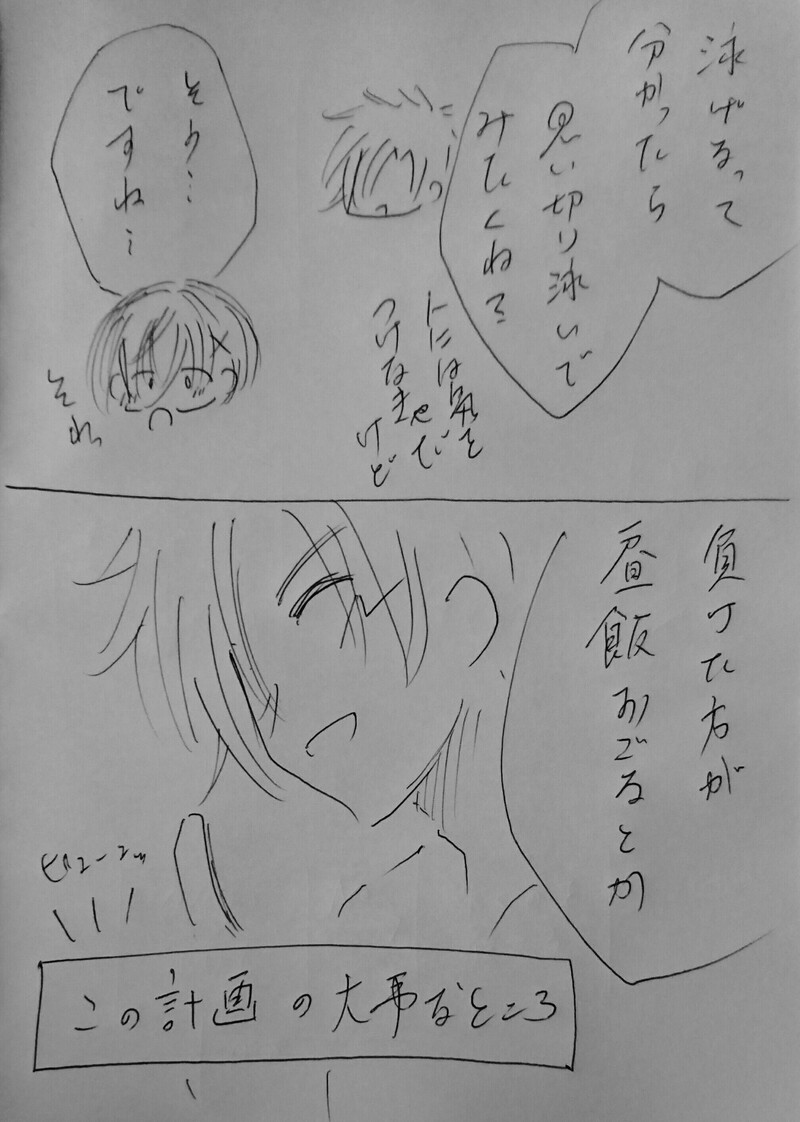 泳げるって
分かったら
思い切り泳いで
みたくねで
人には気を
つけなきゃだ
けど
そう…
ですね…
それっ
負けた方が
昼飯おごるとか
ビューーッ
この計画の大事なところ